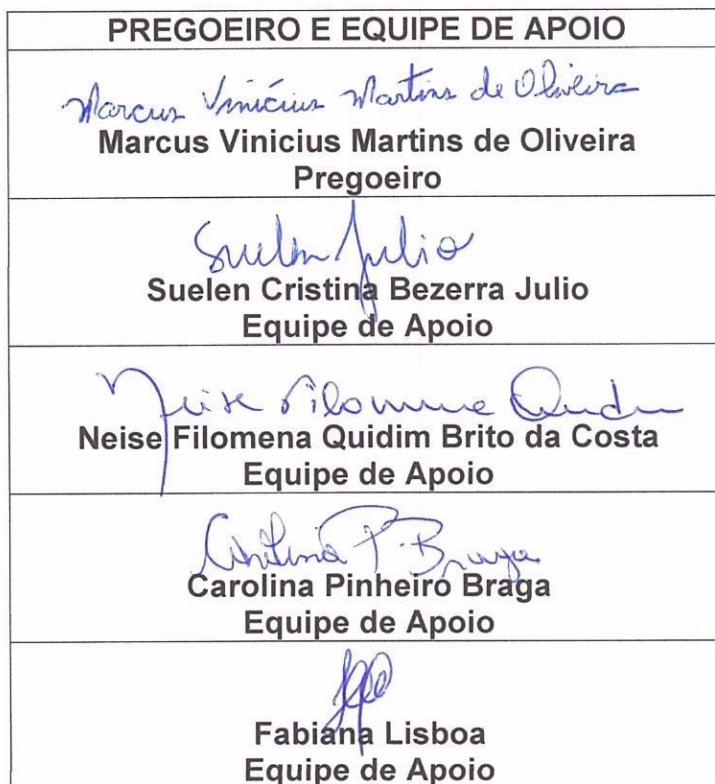 PREGOEIRO E EQUIPE DE APOIO
Marcus Vinícius Martins de Oliveira
Marcus Vinicius Martins de Oliveira
Pregoeiro
Suelen Julio
Suelen Cristina Bezerra Julio
Equipe de Apoio
Neise Filomena
Neise Filomena Quidim Brito da Costa
Equipe de Apoio
Carolina P. Braga
Carolina Pinheiro Braga
Equipe de Apoio
Fabiana Lisboa
Equipe de Apoio